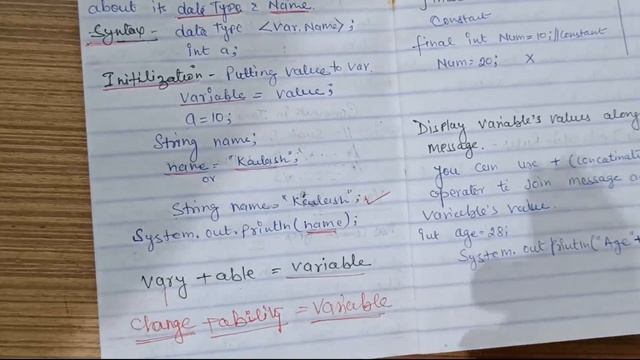 about its data Type & Name.
Syntax - data Type <var. Name>;
int a;
Initilization - Putting value to var.
variable = value;
a = 10;
String name;
name = "Kailash";
or
String name = "Kailash"; ✓
System.out.println(name);
vary + able = variable
change + ability = variable
Constant
final int Num = 10; //Constant
Num = 20; X
Display variable's values along
message.
you can use + (concatinat
operater to join message a
variable's value.
int age = 28;
System.out println("Age" +